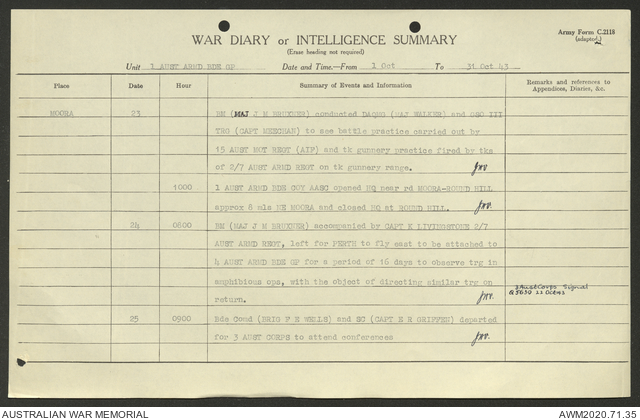 Army Form C.2118
(adapted)
WAR DIARY or INTELLIGENCE SUMMARY
(Erase heading not required)
Unit 1 AUST ARMD BDE GP Date and Time.—From 1 Oct To 31 Oct 43
Place Date Hour Summary of Events and Information Remarks and references to Appendices, Diaries, &c.
MOORA 23 BM (MAJ J M BRUXNER) conducted DAQMG (MAJ WALKER) and GSO III
TRG (CAPT MEECHAN) to see battle practice carried out by
15 AUST MOT REGT (AIF) and tk gunnery practice fired by tks
of 2/7 AUST ARMD REGT on tk gunnery range.
1000 1 AUST ARMD BDE COY AASC opened HQ near rd MOORA-ROUND HILL
approx 8 mls NE MOORA and closed HQ at ROUND HILL.
24 0600 BM (MAJ J M BRUXNER) accompanied by CAPT K LIVINGSTONE 2/7
AUST ARMD REGT, left for PERTH to fly east to be attached to
4 AUST ARMD BDE GP for a period of 16 days to observe trg in
amphibious ops, with the object of directing similar trg on
return.
3 Aust Corps Signal
22 Oct 43
25 0900 Bde Comd (BRIG F E WELLS) and SC (CAPT E H GRIFFEN) departed
for 3 AUST CORPS to attend conferences
AUSTRALIAN WAR MEMORIAL AWM2020.71.35